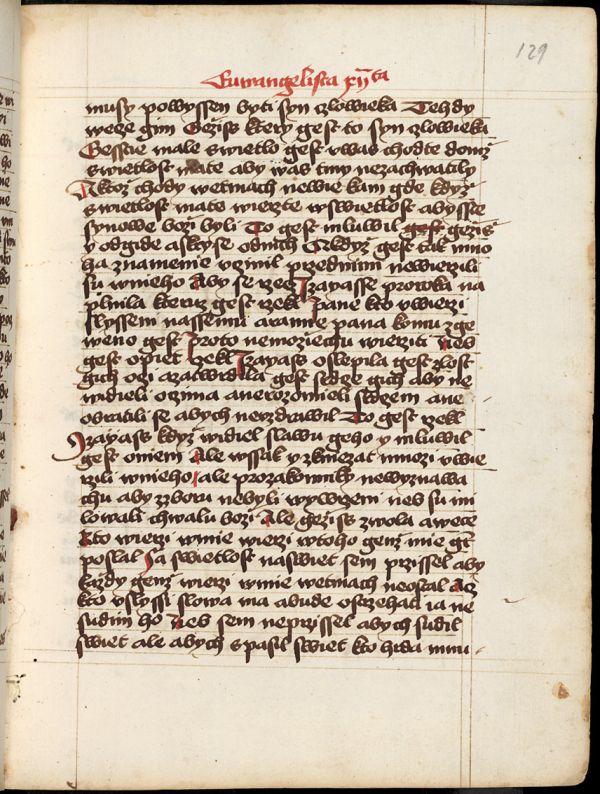 129
Euwangelista xij ta
musy powyssen byti syn czlowieka Tehdy
wecze gim Gežiss ktery gest to syn czlowieka
Gesstie male swietlo gest vwas chodte doniž
swietlost mate aby was tmy nezachwatily
Aktož chody wetmach newie kam gde kdyz
swietlost mate wierzte wswietlost abysste
synowe boži byli To gest mluwil gest geziss
y odgide askry se odnich A kdyz gest tak mno
ha znamenie vczinil przednimi newierzili
su wnieho Aby se rzecz Izayasse proroka na
plnila kteruz gest rzekl Pane kto vwierzi
slysseni nassemu aramie pana komu zge
weno gest Proto nemoziechu wierziti neb
gest opiet rzekl Izayass oslepila gest zlost
gich oczi azatwrdila gest srdcze gich aby ne
widieli oczima anerozomieli srdczem ane
obratili se abych neuzdrawil To gest rzekl
Izayass kdyz widiel slawu geho y mluwil
gest oniem Ale wssak y zkniezat mnozi vwie
rzili wnieho ale prozakonniky newyznawa
chu aby zzboru nebyli wywrzeni neb su mi
lowali chwalu bozi Ale geziss zwola awece
Kto wierzi wmie wierzi wtoho genz mie gt
poslal Ja swietlost naswiet sem przissel aby
každy genz wierzi wmie wetmach neostal Acz
kto vslyssi slowa ma abude ostrzehati ia ne
sudim ho neb sem neprzissel abych sudil
swiet ale abych spasil swiet kto hrda mnu